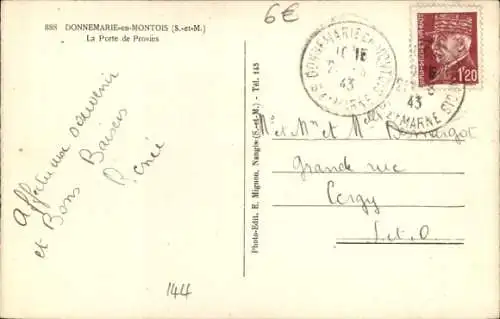 888 DONNEMARIE-en-MONTOIS (S.-et-M.)
La Porte de Provins
6€
DONNEMARIE-EN-MONTOIS
43
Nº MARNE
1F20
43
Affectueux souvenir
et Bons Baisers
Renée
Photo-Edit. E. Mignon, Nangis (S.-et-M.) - Tél. 145
Mr et Mme et Melle
Grande rue
Cergy
S. et O.
144